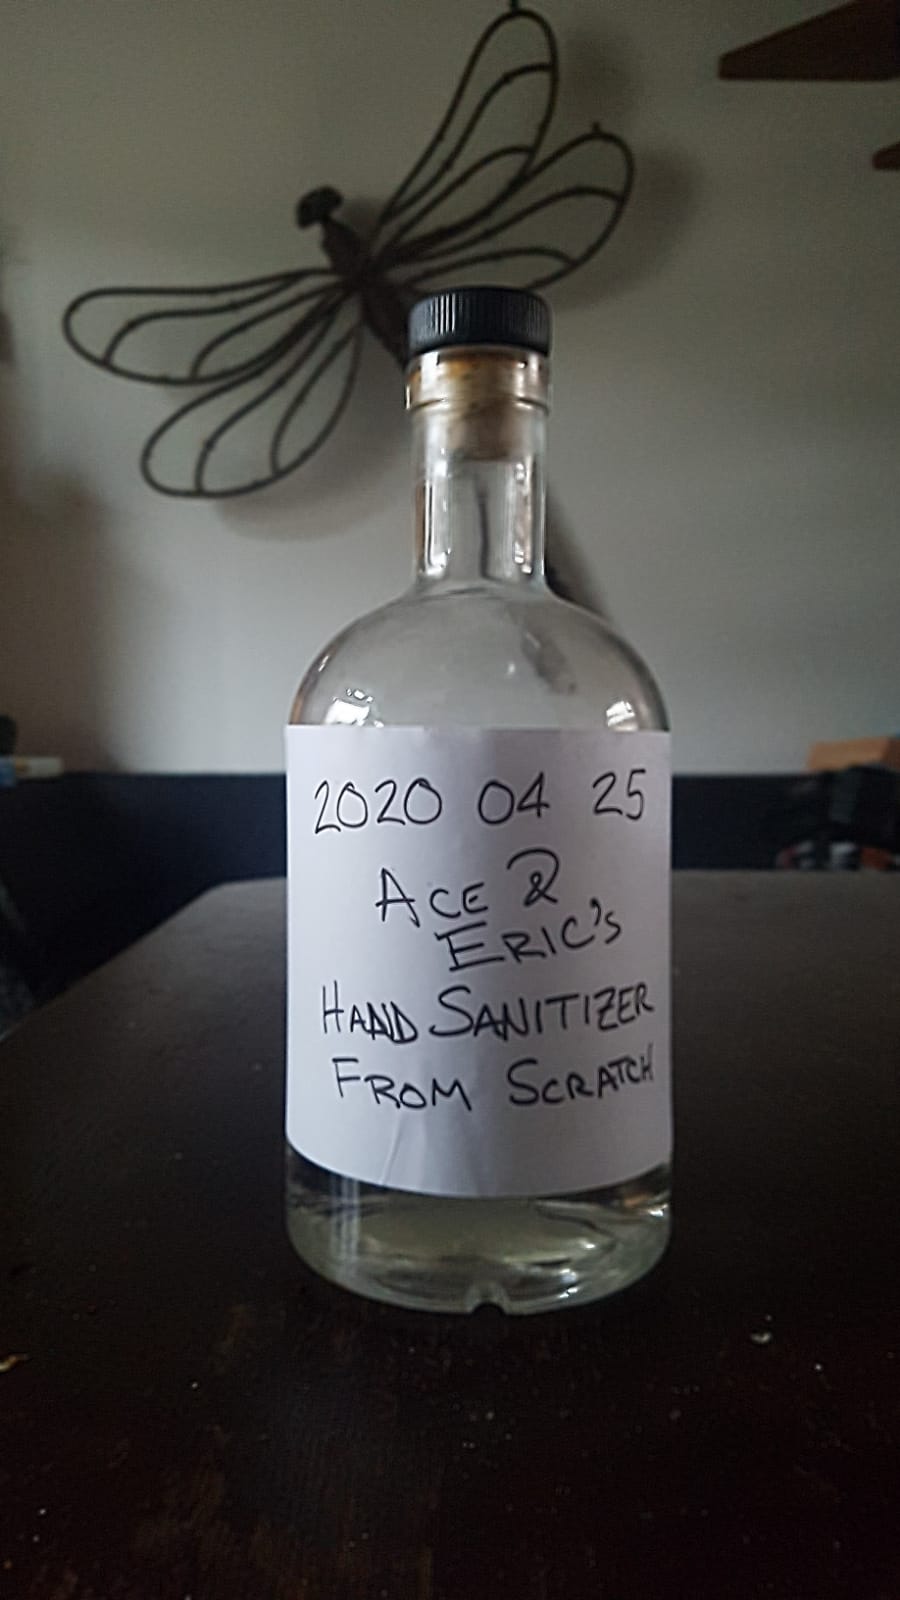 2020 04 25
ACE &
ERIC'S
HAND SANITIZER
FROM SCRATCH